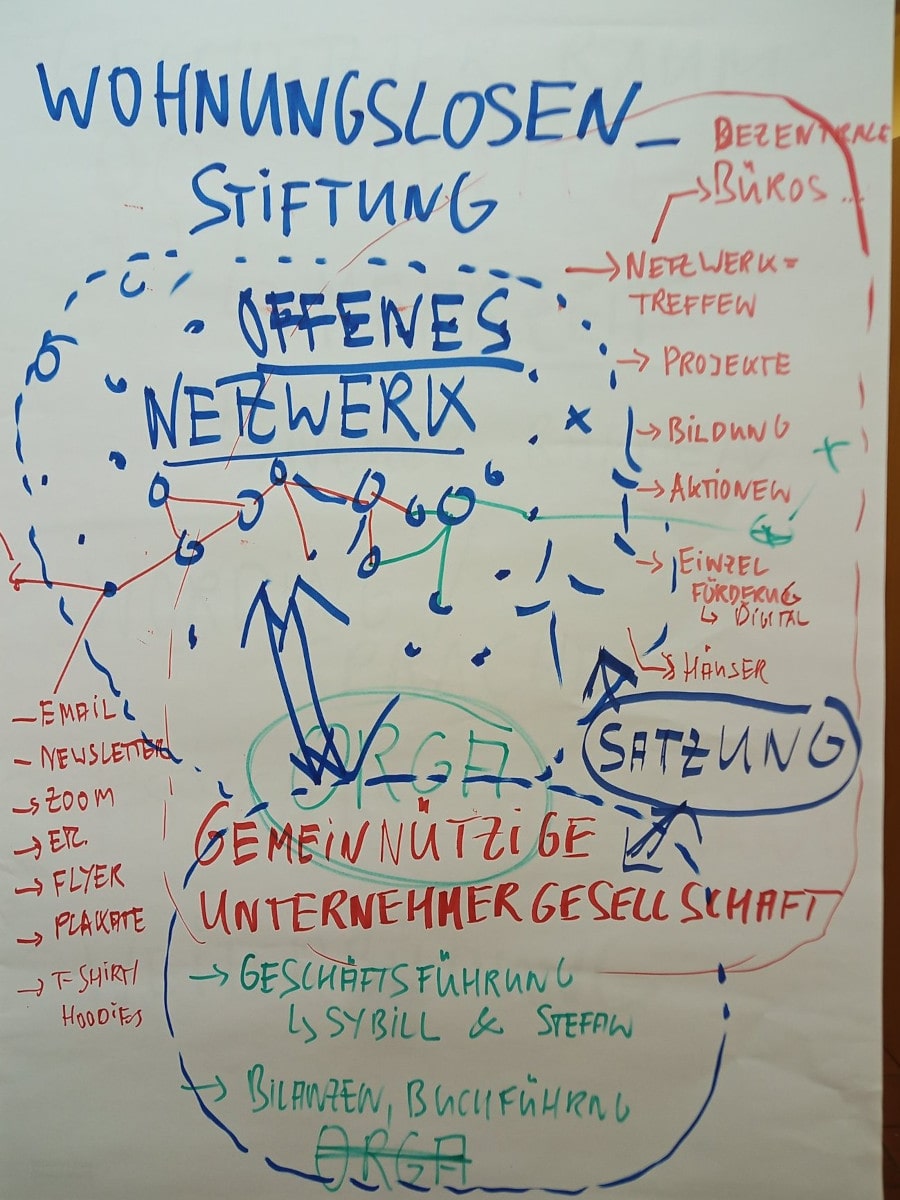 WOHNUNGSLOSEN_
STIFTUNG
DEZENTRALE
BÜROS ...
→ NETZWERK=
TREFFEN
→ PROJEKTE
→ BILDUNG
→ AKTIONEN
→ EINZEL
FÖRDERUNG
↳ DIGITAL
→ HÄUSER
OFFENES
NETZWERK
– EMAIL
– NEWSLETTER
→ ZOOM
→ ETC.
→ FLYER
→ PLAKATE
→ T-SHIRT/
HOODIES
ORGA
SATZUNG
GEMEINNÜTZIGE
UNTERNEHMERGESELLSCHAFT
→ GESCHÄFTSFÜHRUNG
↳ SYBILL & STEFAN
→ BILANZEN, BUCHFÜHRUNG
ORGA